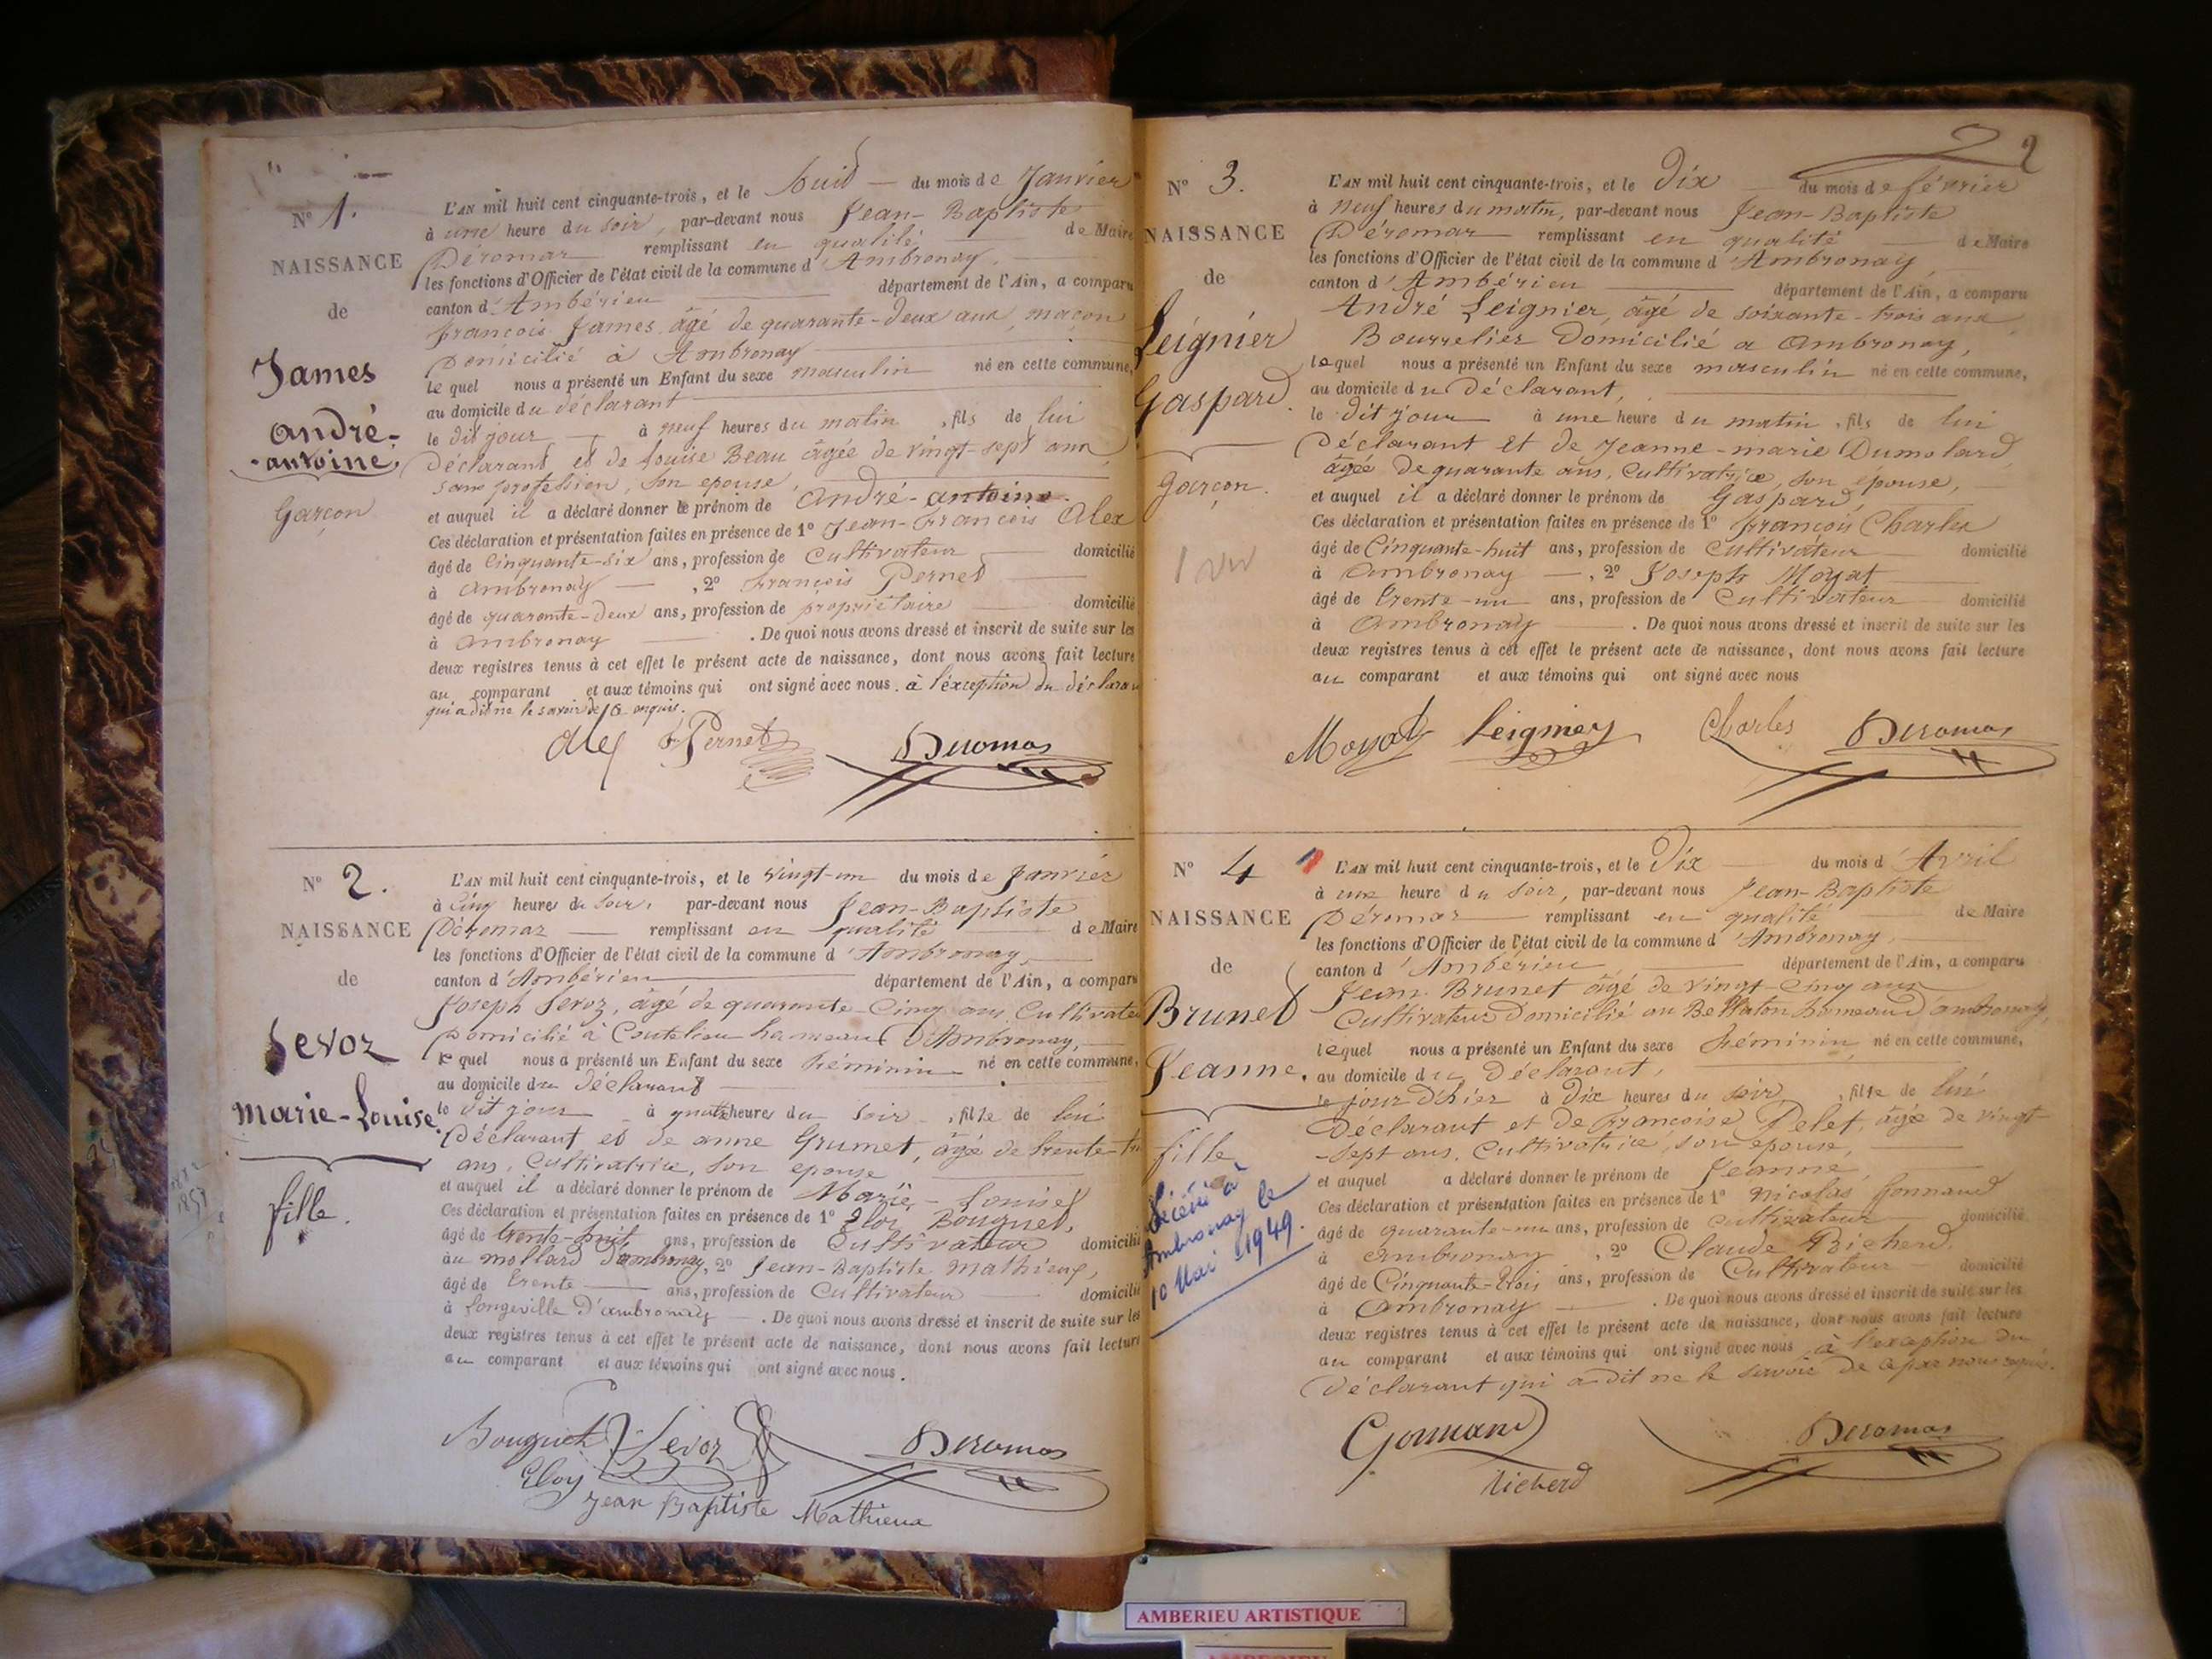 N° 1.
NAISSANCE
de
James
André-
-antoine,
Garçon
L'AN mil huit cent cinquante-trois, et le huit — du mois de Janvier
à une heure du soir, par-devant nous Jean-Baptiste
Déromas remplissant en qualité — de Maire
les fonctions d'Officier de l'état civil de la commune d'Ambronay,
canton d'Ambérieu — département de l'Ain, a comparu
françois James, âgé de quarante-deux ans, maçon
Domicilié à Ambronay
lequel nous a présenté un Enfant du sexe masculin né en cette commune,
au domicile du déclarant
le dit jour — à neuf heures du matin, fils de lui
Déclarant et de Louise Beau âgée de vingt-sept ans,
sans profession, son epouse,
et auquel il a déclaré donner le prénom de André-antoine.
Ces déclaration et présentation faites en présence de 1° Jean-François Alex
âgé de Cinquante-six ans, profession de Cultivateur — domicilié
à Ambronay —, 2° François Pernet
âgé de quarante-deux ans, profession de propriétaire — domicilié
à Ambronay — . De quoi nous avons dressé et inscrit de suite sur les
deux registres tenus à cet effet le présent acte de naissance, dont nous avons fait lecture
au comparant et aux témoins qui ont signé avec nous. à l'éxception du déclarant
qui a dit ne le savoir de ce enquis.
Alex F Pernet Deromas
N° 2.
NAISSANCE
de
Sevoz
Marie-Louise.
fille.
L'AN mil huit cent cinquante-trois, et le vingt-un du mois de Janvier
à Cinq heures du soir, par-devant nous Jean-Baptiste
Déromas — remplissant en qualité — de Maire
les fonctions d'Officier de l'état civil de la commune d'Ambronay,
canton d'Ambérieu — département de l'Ain, a comparu
Joseph Sevoz, âgé de quarante-Cinq ans, Cultivateu
Domicilié à Coutelieu hameau D'Ambronay,
lequel nous a présenté un Enfant du sexe féminin né en cette commune,
au domicile du Déclarant
le dit jour à quatre heures du soir, fille de lui
Déclarant et de anne Grumet, âgé de trente-
ans, Cultivatrice, son epouse
et auquel il a déclaré donner le prénom de Marie-Louise
Ces déclaration et présentation faites en présence de 1° Eloy Bouquet,
âgé de trente-huit ans, profession de Cultivateur domicilié
au mollard D'ambronay, 2° Jean-Baptiste Mathieux,
âgé de trente — ans, profession de Cultivateur — domicilié
à Longeville D'ambronay — . De quoi nous avons dressé et inscrit de suite sur les
deux registres tenus à cet effet le présent acte de naissance, dont nous avons fait lecture
au comparant et aux témoins qui ont signé avec nous.
Bouquet Sevoz Deromas
Eloy
Jean Baptiste Mathieux
2
N° 3.
NAISSANCE
de
Leignier
Gaspard.
garçon.
L'AN mil huit cent cinquante-trois, et le Dix — du mois de février
à neuf heures du matin, par-devant nous Jean-Baptiste
Déromas — remplissant en qualité — de Maire
les fonctions d'Officier de l'état civil de la commune d'Ambronay
canton d'Ambérieu — département de l'Ain, a comparu
André Leignier, âgé de soixante-trois ans
Bourrelier Domicilié a Ambronay,
lequel nous a présenté un Enfant du sexe masculin né en cette commune,
au domicile du Déclarant,
le dit jour — à une heure du matin, fils de lui
Déclarant et de Jeanne-marie Dumolard,
âgée de quarante ans, Cultivatrice, son épouse,
et auquel il a déclaré donner le prénom de Gaspard,
Ces déclaration et présentation faites en présence de 1° François Charles
âgé de Cinquante-huit ans, profession de Cultivateur — domicilié
à Ambronay —, 2° Joseph Moyat
âgé de trente-un ans, profession de Cultivateur domicilié
à Ambronay — . De quoi nous avons dressé et inscrit de suite sur les
deux registres tenus à cet effet le présent acte de naissance, dont nous avons fait lecture
au comparant et aux témoins qui ont signé avec nous
Moyat Leignier Charles Deromas
N° 4
NAISSANCE
de
Brunet
Jeanne.
fille
Décédée à
Ambronay le
10 Mai 1949.
L'AN mil huit cent cinquante-trois, et le Dix — du mois d'Avril
à une heure du soir, par-devant nous Jean-Baptiste
Déromas — remplissant en qualité — de Maire
les fonctions d'Officier de l'état civil de la commune d'Ambronay,
canton d'Ambérieu — département de l'Ain, a comparu
Jean Brunet âgé de vingt-Cinq ans
Cultivateur Domicilié au Bellaton hameau d'ambronay,
lequel nous a présenté un Enfant du sexe féminin né en cette commune,
au domicile du Déclarant,
le jour d'hier à Dix heures du soir, fille de lui
Déclarant et de Françoise Pelet, âgée de vingt-
-sept ans, Cultivatrice, son epouse,
et auquel a déclaré donner le prénom de Jeanne,
Ces déclaration et présentation faites en présence de 1° Nicolas Gonnand
âgé de quarante-un ans, profession de cultivateur domicilié
à Ambronay, 2° Claude Richerd,
âgé de Cinquante-trois ans, profession de Cultivateur domicilié
à Ambronay — . De quoi nous avons dressé et inscrit de suite sur les
deux registres tenus à cet effet le présent acte de naissance, dont nous avons fait lecture
au comparant et aux témoins qui ont signé avec nous à l'exception du
Déclarant qui a dit ne le savoir de ce par nous requis.
Gonnand Deromas
Richerd
AMBERIEU ARTISTIQUE